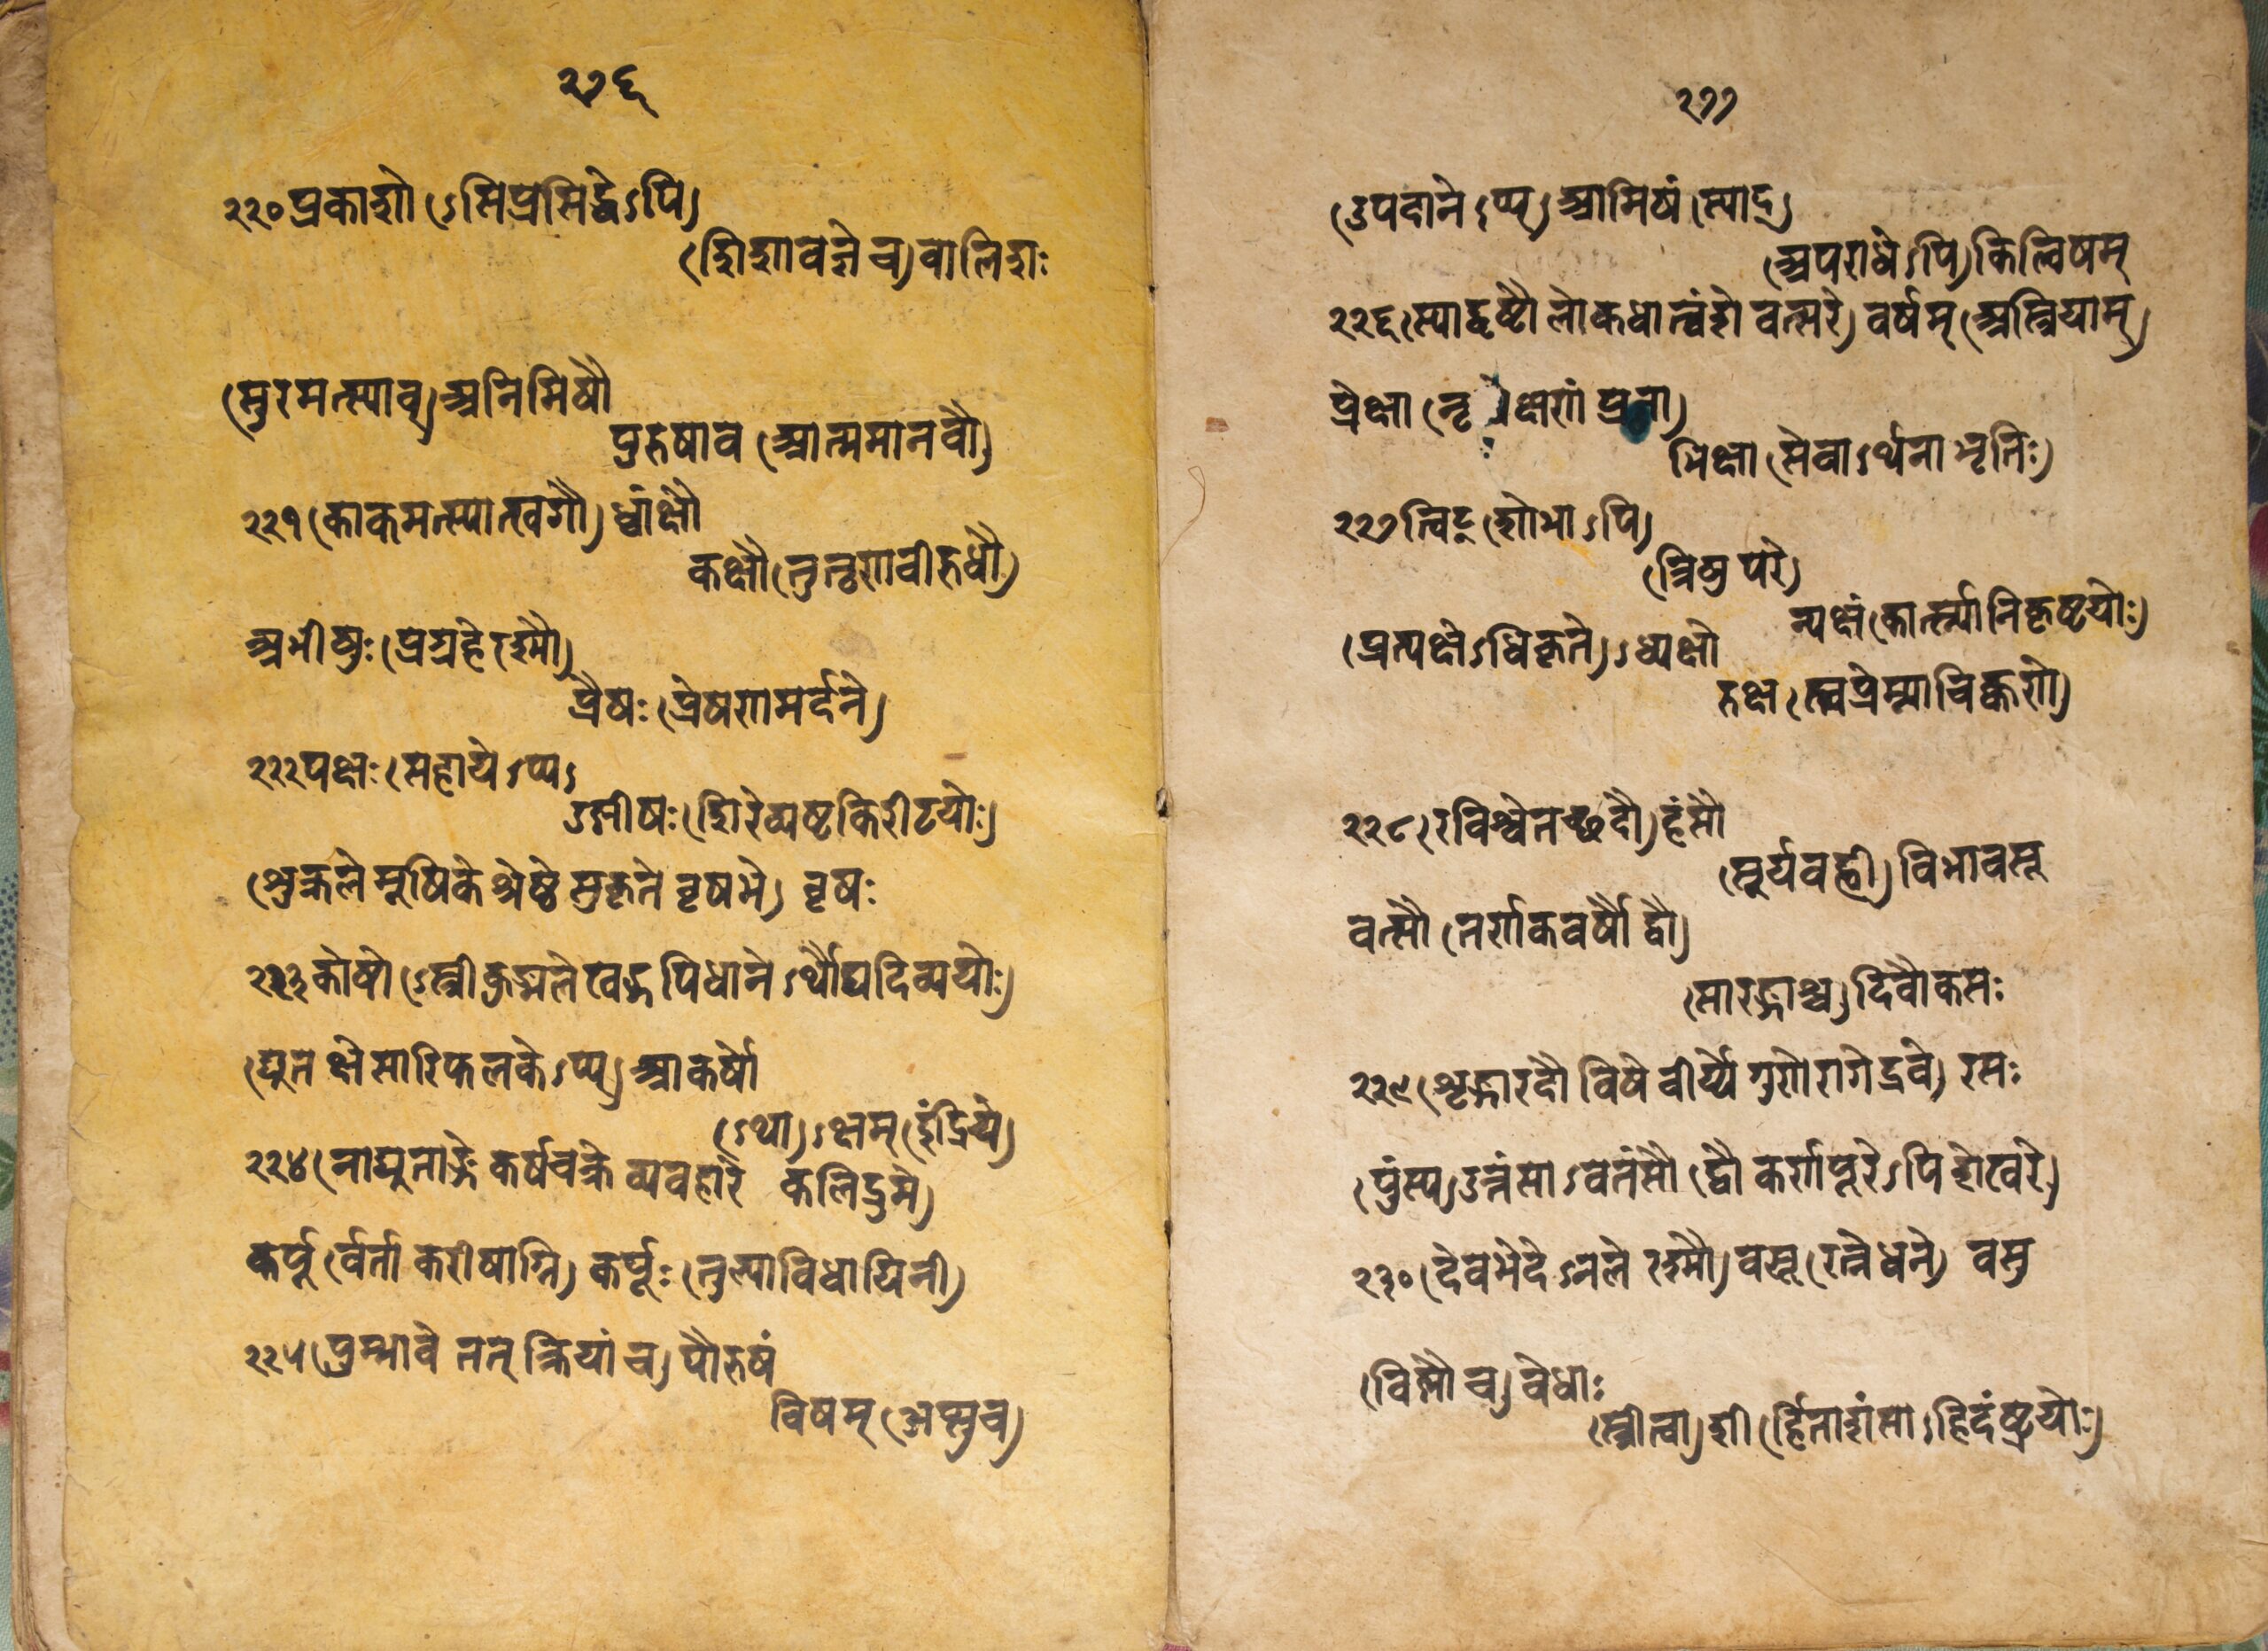 २७६
२२० प्रकाशो (ऽसिप्रसिद्धेऽपि)
(शिशावज्ञे च) वालिशः
(सुरमत्स्याव्) अनिमिषौ
पुरुषाव (आत्ममानवौ)
२२१ (काकमत्स्यात्खगौ) ध्वांक्षौ
कक्षौ (तु तृणवीरुधौ)
अभीषुः (प्रग्रहे रश्मौ)
प्रैषः (प्रेषणमर्दने)
२२२ पक्षः (सहायेऽप्य)
उष्णीषः (शिरेव्यष्टकिरीटयोः)
(शुक्रले मूषिके श्रेष्ठे सुकृते वृषभे) वृषः
२२३ कोषो (ऽस्त्री कुड्मले खड्गपिधानेऽर्थौघदिव्ययोः)
(द्यूतेक्षे सारिफलकेऽप्य्) आकर्षो
(ऽथा)ऽक्षम् (इंद्रिये)
२२४ (नाद्यूताङ्गे कर्षचक्रे व्यवहारे कलिद्रुमे)
कर्षू र्व्वर्ता करीषाग्नि) कर्षूः (तुल्याविधायिनी)
२२५ (पुम्भावे तत् क्रियां च) पौरुषं
विषम् (अप्सु च)
२७७
(उपदानेऽप्य्) आमिषं (स्याद्)
(अपराधेऽपि) किल्विषम्
२२६ (स्याद्वृष्टौ लोकधात्वंशे वत्सरे) वर्षम् (अस्त्रियाम्)
प्रेक्षा (नृ क्षणं प्रज्ञा)
भिक्षा (सेवाऽर्थना भृतिः)
२२७ त्विट् (शोभाऽपि)
(त्रिषु परे)
न्यक्षं (कार्त्स्न्यनिकृष्टयोः)
(प्रत्यक्षेऽधिकृते)ऽध्यक्षो
रुक्ष (स्त्वप्रेम्ण्यचिक्कणे)
२२८ (रविश्वेतच्छदौ) हंसौ
(सूर्यवह्नी) विभावसू
वत्सौ (तर्णकवर्षौ द्वौ)
(सारङ्गाश्च) दिवौकसः
२२९ (शृङ्गारदौ विषे वीर्य्ये गुणे रागे द्रवे) रसः
(पुंस्य्) उत्तंसाऽवतंसौ (द्वौ कर्णपूरेऽपि शेखरे)
२३० (देवभेदेऽनले रश्मौ) वसू (रत्ने धने) वसु
(विष्णौ च) वेधाः
(स्त्रीत्वा) शी (र्हिताशंसाऽहिदंष्ट्रयोः)